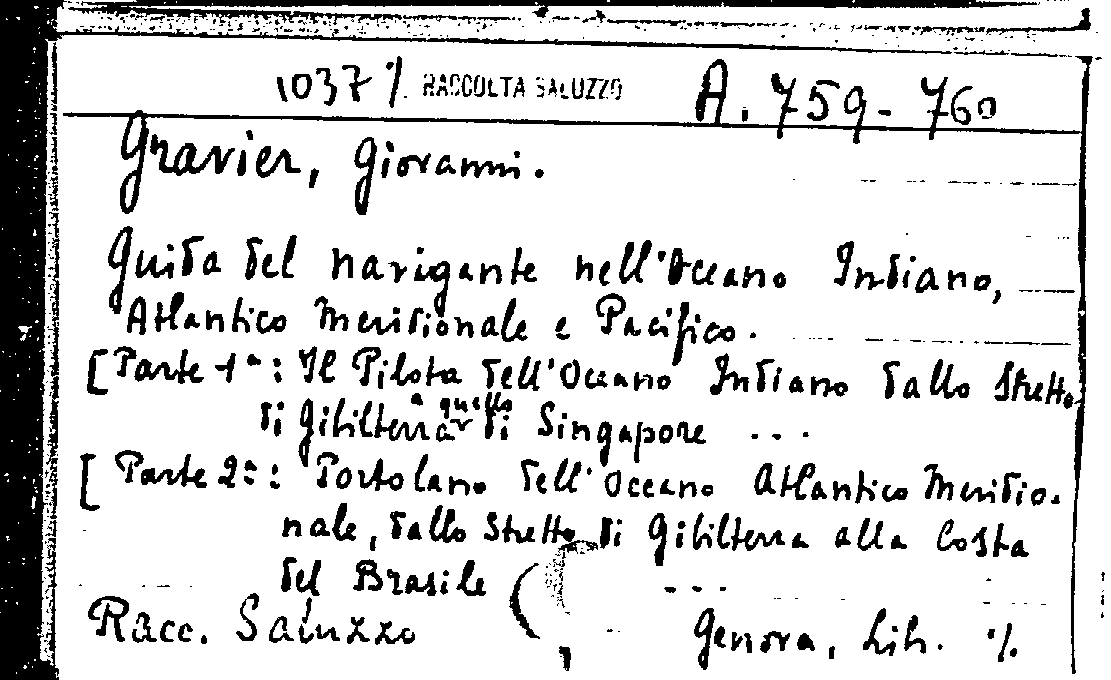 1037 ·/. RACCOLTA SALUZZO A. 759-760
Gravier, Giovanni.
Guida del navigante nell'Oceano Indiano,
Atlantico Meridionale e Pacifico.
[Parte 1ª: Il Pilota dell'Oceano Indiano dallo Stretto
di Gibilterra a quello di Singapore ...
[Parte 2ª: Portolano dell'Oceano Atlantico Meridio-
nale, dallo Stretto di Gibilterra alla Costa
del Brasile ...
Racc. Saluzzo Genova, Lib. ·/.